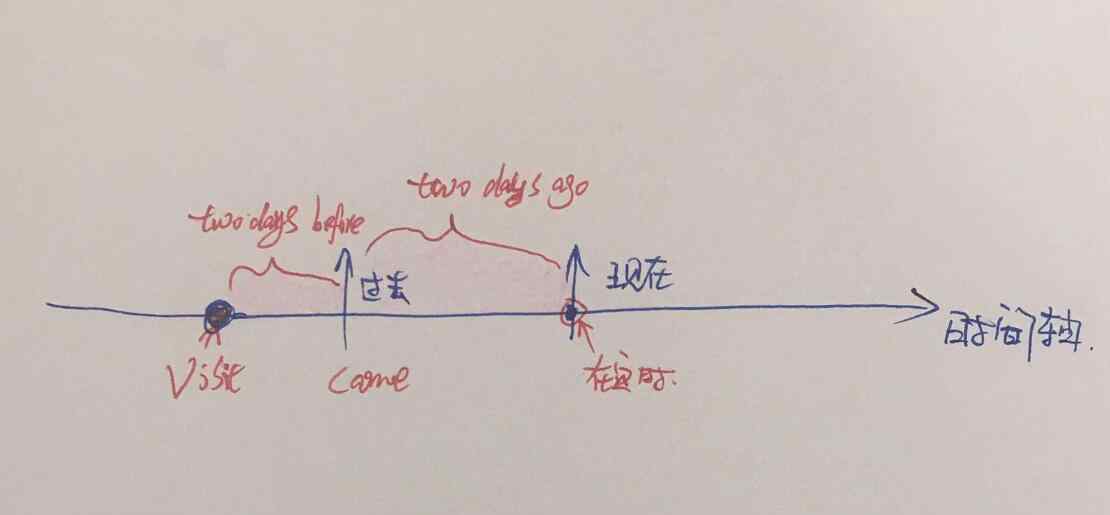 two days ago
two days before
过去
现在
时间轴.
Visit
came
在这时.